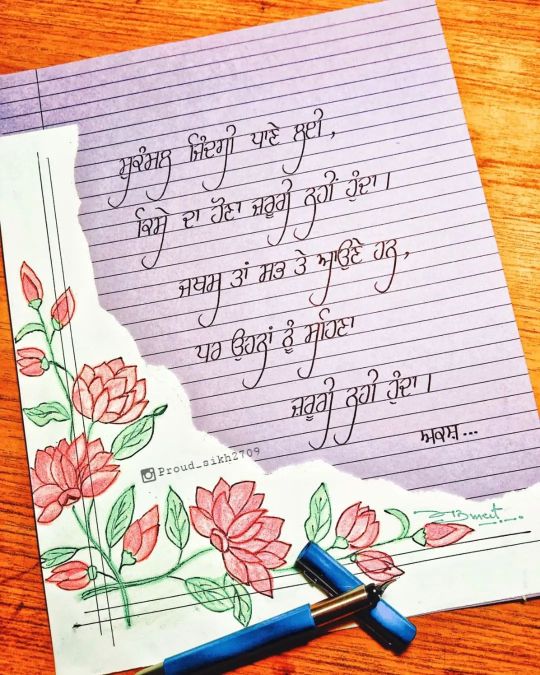 ਮੁਕੰਮਲ ਜ਼ਿੰਦਗੀ ਪਾਣੇ ਲਈ,
ਕਿਸੇ ਦਾ ਹੋਣਾ ਜ਼ਰੂਰੀ ਨਹੀਂ ਹੁੰਦਾ।
ਜਖਮ ਤਾਂ ਸਭ ਤੇ ਆਉਣੇ ਹਨ,
ਪਰ ਉਹਨਾਂ ਨੂੰ ਸਹਿਣਾ
ਜ਼ਰੂਰੀ ਨਹੀ ਹੁੰਦਾ।
ਅਕਸ਼...
Proud_sikh2709